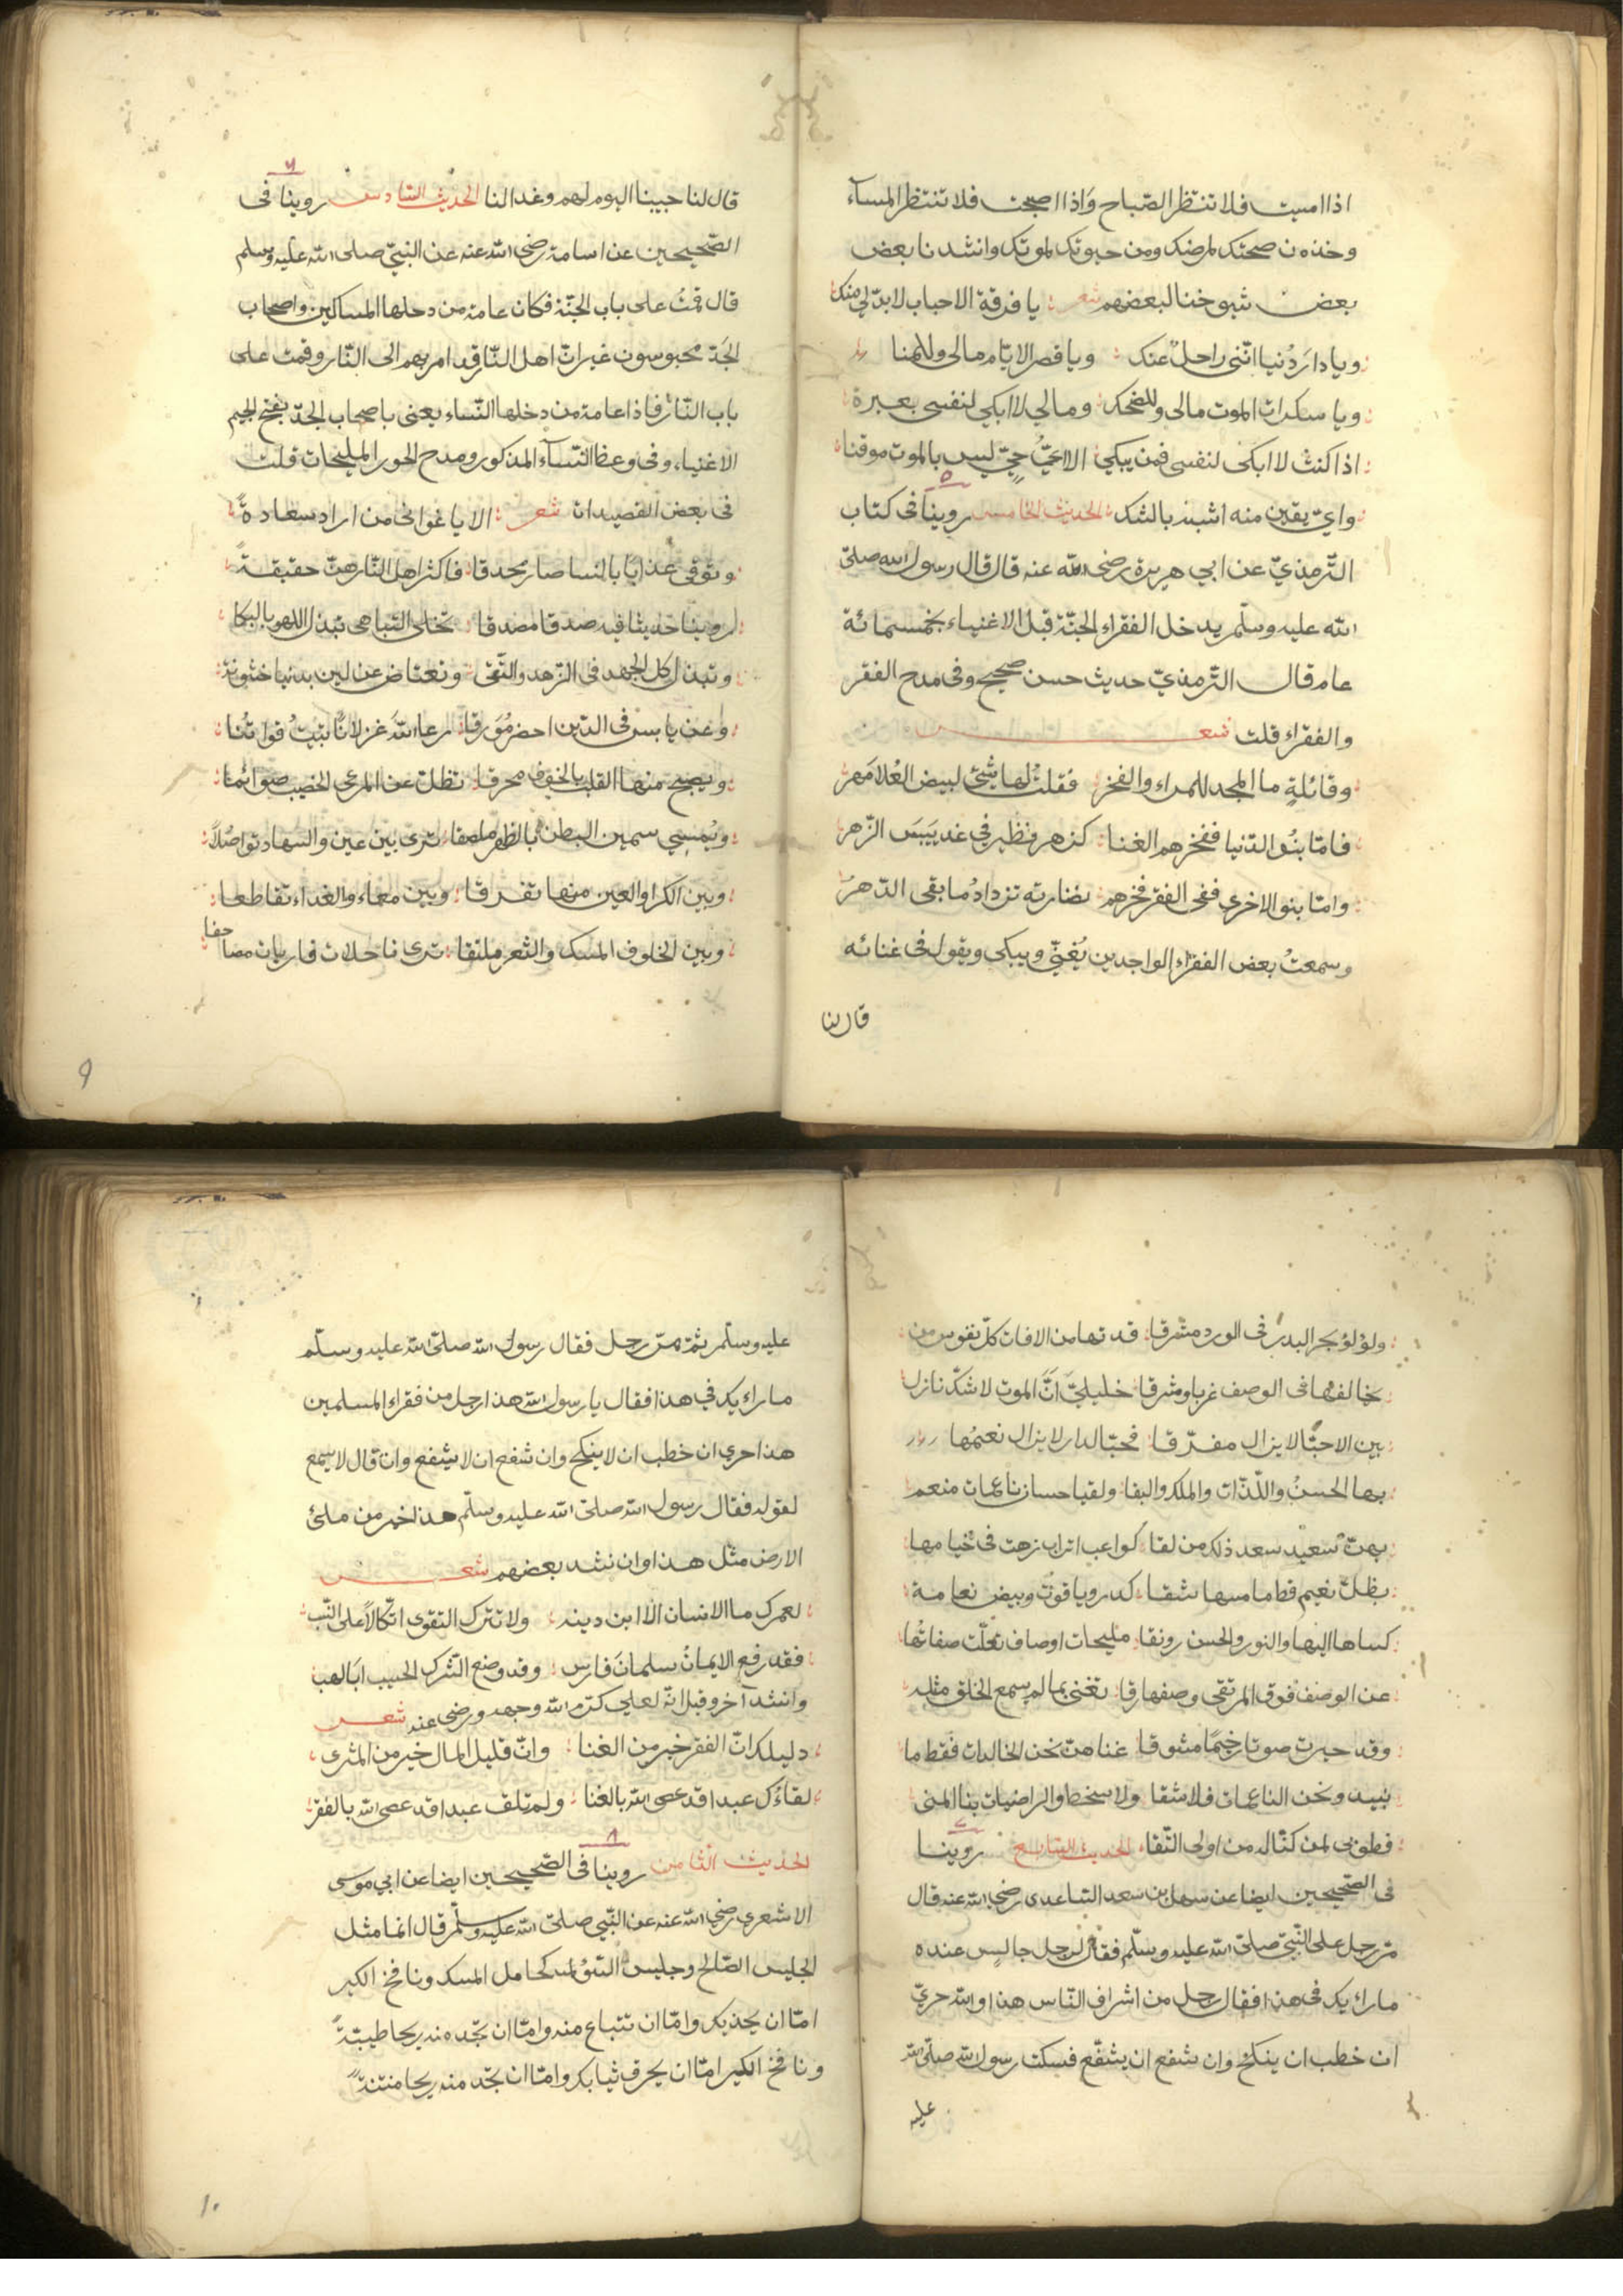 اذا امسيت فلا تنتظر الصّباح وَاذا اصبحت فلا تنتظر المساء
وخذ من صحتك لمرضك ومن حيوتك لموتك وانشدنا بعض
بعض شيوخنا لبعضهم شعر يا فرقة الاحباب لابدّ لي منك
ويا دارَ دُنيا انّني راحلٌ عنك ويا قصر الايّام مالى وللمنا
ويا سكرات الموت مالى وللضحك ومالي لا ابكي لنفسى بعبرة
اذا كنت لا ابكى لنفسى فمن يبكي الا ايّ حيّ ليس بالموت موقنا
واي يقين منه اشبه بالشك الحديث الخامس روينا فى كتاب
٥
التّرمذيّ عن ابي هريرة رضى الله عنه قال قال رسول الله صلىّ
الله عليه وسلّم يدخل الفقراء الجنّة قبل الاغنياء بخمسمائة
عام قال التّرمذيّ حديث حسن صحيح وفى مدح الفقر
والفقراء قلت شعر
وقائلةٍ ما المجد للمراء والفخر فقلت لها شئ لبيض العُلا مهر
فامّا بنُو الدّنيا ففخرهم الغنا كزهر نظير في غد يَيبَس الزّهر
وامّا بنو الاخرى ففى الفقر فخرهم نضارته تزدادُ ما بقى الدّهرُ
وسمعتُ بعض الفقراء الواجدين يُغنّي ويبكى ويقول فى غنائه
قال لنا
قال لنا حبيبنا اليوم لهم وغدا لنا الحديث السّادس روينا فى
٦
الصّحيحين عن اسامة رضى الله عنه عن النبيّ صلى الله عليه وسلم
قال قمتُ على باب الجنّة فكان عامة من دخلها المساكين واصحاب
الجَدّ محبوسون غير انّ اهل النّار قد امر بهم الى النّار وقمت على
باب النّار فاذا عامة من دخلها النّساء يعنى باصحاب الجدّ بفتح الجيم
الاغنياء وفى وعظ النّساء المذكور ومدح الحور المليحات قلت
فى بعض القصيدات شعر الا يا غوانى من اراد سعادةً
وتوقى عذابًا بالنسا صار محدقا فاكثر اهل النّار هنّ حقيقة
روينا حديثا فيه صدقا مصدقا تخلى التباهى تبدل اللهو بالبكا
وتبدل كل الجهد فى الزهد والتّقى وتعتاض عن لين بدنيا خشونة
وعن يابس فى الدّين احضر مُوَرقا رعا الله غزلانًا تبيتُ قوانتُا
ويصبح منها القلب بالخوف محرقا تظلّ عن المرعى الخصيب صوائما
ويُمسِي سمين البطن بالظهر ملصقا ترى بين عين والسهاد تواصُلاً
وبين الكرا والعين منها تفرقا وبين معاء والغداء تقاطعا
وبين الخلوف المسك والثغر ملتقا ترى ناحلات قاربات مصاحفا
٩
ولؤلؤ بحر البدر فى الورد مشرقا قد تها من الافات كلّ
يخالفها فى الوصف غربا ومشرقا خليليّ انّ الموت لا شكّ نازل
بين الاحبّا لا يزال مفرّقا فحبّا لدار لا يزال نعيمُها
بها الحسنُ واللّذّات والملك والبقا ولقيا حسان ناعمات منعم
بهنّ سعيد سعد ذلك من لقا كواعب اتراب زهت فى خيامها
بظلّ نعيم قط ما مسها شقا كدر وياقوت وبيض نعامة
كساها البها والنور والحسن رونقا مليحات اوصاف تعلّت صفاتُها
عن الوصف فوق المرتقى وصفها رقا تغنى بما لم يسمع الخلق مثله
وقد حبرت صوتا رخيمًا مشوقا غناهنّ نحن الخالدات فقط ما
نبيد ونحن الناعمات فلا شقا ولا سخط والراضيات بنا المنى
فطوبى لمن كنّا له من اولى التّقا الحديث السّابع روينا
٧
فى الصّحيحين ايضا عن سهل بن سعد السّاعدى رضى الله عنه قال
مرّ رجل على النّبيّ صلىّ الله عليه وسلّم فقال لرجل جالس عنده
ما رايك فى هذا فقال رجل من اشراف النّاس هذا والله حريّ
ان خطب ان ينكح وان شفع ان يشفّع فسكت رسول الله صلىّ الله
عليه
عليه وسلّم ثمّ مرّ رجل فقال رسول الله صلىّ الله عليه وسلّم
ما رايك في هذا فقال يا رسول الله هذا رجل من فقراء المسلمين
هذا حرى ان خطب ان لا ينكح وان شفع ان لا يشفع وان قال لا يسمع
لقوله فقال رسول الله صلىّ الله عليه وسلّم هذا خير من ملئ
الارض مثل هذا وان نشد بعضهم شعر
لعمرك ما الانسان الّا ابن دينه ولا تترك التقوى اتّكالاً على النّسب
فقد رفع الايمانُ سلمانَ فارس وقد وضع الشّرك الحسيب ابا لهب
وانشد آخر وقيل انّه لعلي كرّم الله وجهه ورضى عنه شعر
دليلك انّ الفقر خير من الغنا وانّ قليل المال خير من المثرى
لقاؤك عبدا قد عصى الله بالغنا ولم تلف عبدا قد عصى الله بالفقر
٨
الحديث الثّامن روينا فى الصّحيحين ايضا عن ابي موسى
الاشعري رضي الله عنه عن النّبي صلىّ الله عليه وسلّم قال انما مثل
الجليس الصّالح وجليس السّوْء كحامل المسك ونافخ الكير
امّا ان يحذيك وامّا ان تبتاع منه وامّا ان تجد منه ريحا طيبّةً
ونافخ الكير امّا ان يحرق ثيابك وامّا ان تجد منه ريحا منتنةً
١٠